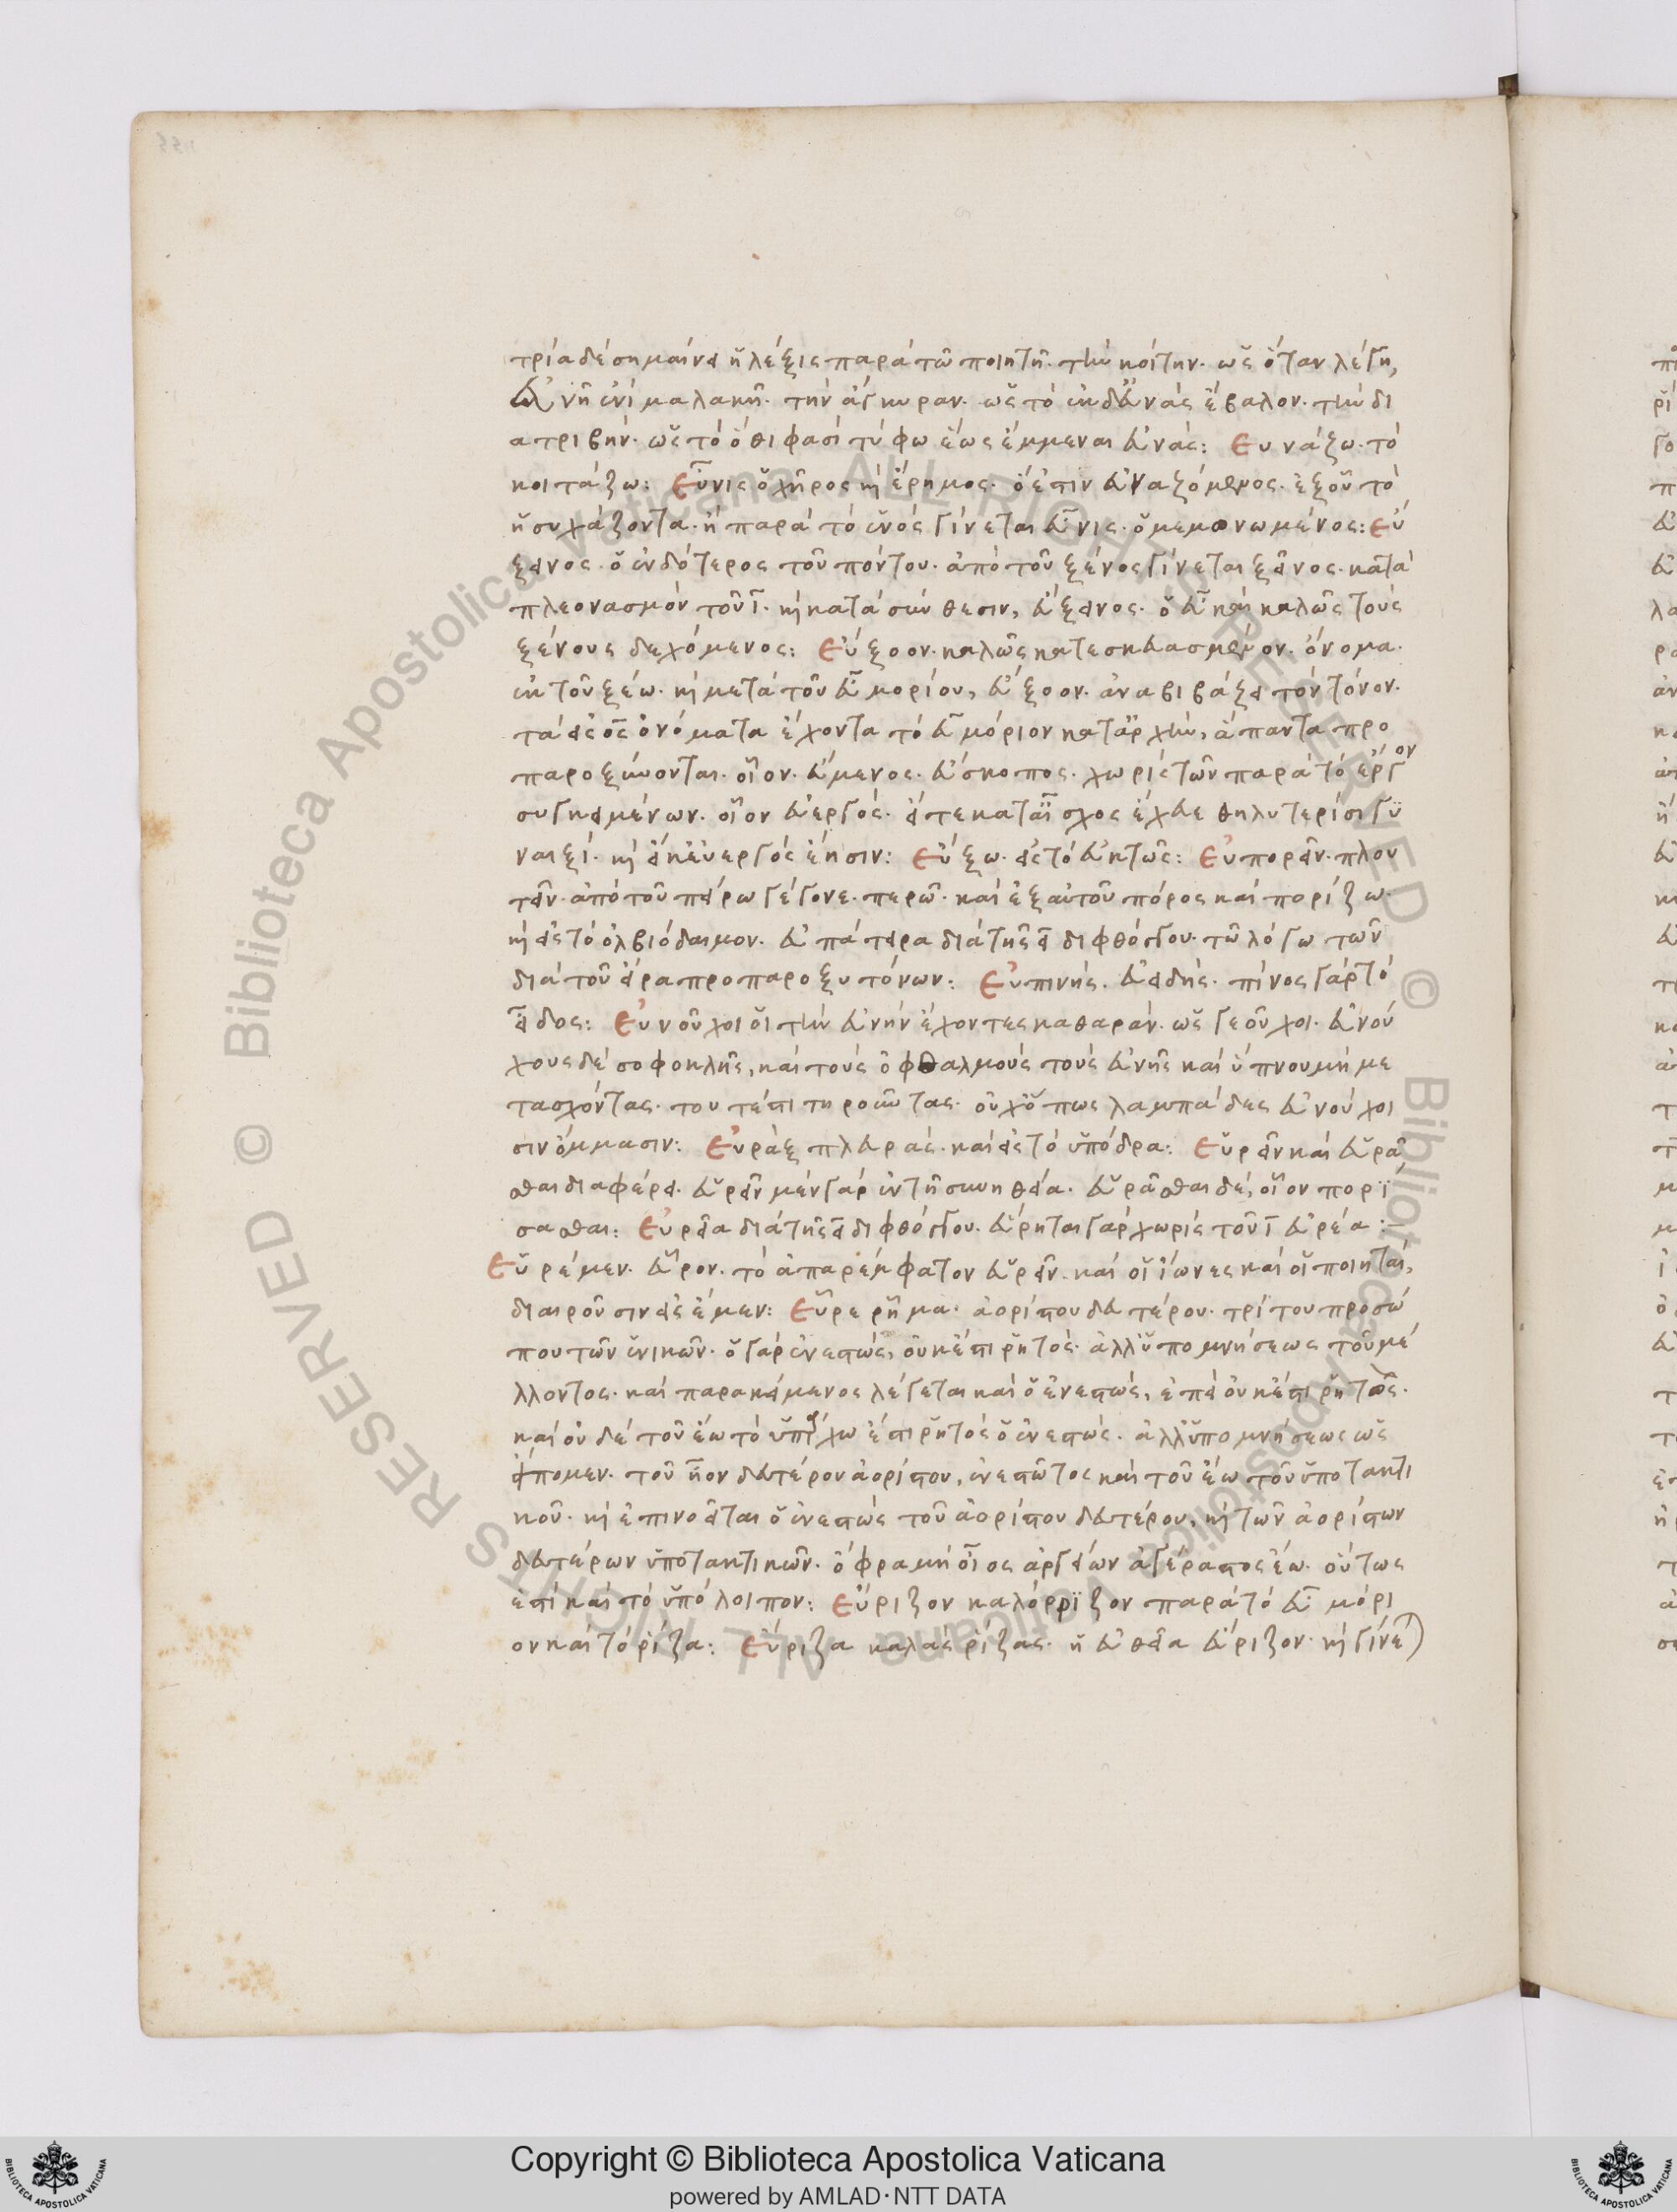 τρία δὲ σημαίνει ἡ λέξις παρὰ τῶ ποιητῆ. τὴν κοίτην. ὡς ὅταν λέγη,
εὐνῆ ἐνὶ μαλακῆ. τὴν ἄγκυραν. ὡς τὸ ἐκ δ' εὐνὰς ἔβαλον. τὴν δι
ατριβήν. ὡς τὸ ὅθι φασὶ τύφω έως ἔμμεναι εὐνάς: Ευνάζω. τὸ
κοιτάζω: Εὖνις ὁ χῆρος κὶ ἔρημος. ὅ ἐστιν εὐναζόμενος. ἐξ οὗ τὸ
ἡσυχάζοντα. ἢ παρὰ τὸ ἑνὸς γίνεται εὖνις. ὁ μεμονωμένος: Εὔ
ξεινος. ὁ ἐνδότερος τοῦ πόντου. ἀπὸ τοῦ ξένος γίνεται ξεῖνος. κατὰ
πλεονασμὸν τοῦ ῑ. κὶ κατὰ σύνθεσιν, εὔξεινος. ὁ εὖ καὶ καλῶς τοὺς
ξένους δεχόμενος: Εὔξοον. καλῶς κατεσκευασμένον. ὄνομα.
ἐκ τοῦ ξέω. κὶ μετὰ τοῦ εὖ μορίου, εὔξοον. ἀναβιβάζει τὸν τόνον.
τὰ εἰς ος ὀνόματα ἔχοντα τὸ εὖ μόριον κατ' ἀρχὴν, ἅπαντα προ
παροξύνονται. οἷον. εὔμενος. εὔσκοπος. χωρὶς τῶν παρὰ τὸ ἔργον
συγκειμένων. οἷον εὐεργός. εἴ τε κατ' αἶσχος ἔχευε θηλυτερίσι γυ
ναιξί. κὶ εἴ κ' ἐυεργὸς ἔησιν: Εὔξω. εἰς τὸ εὐκτῶς: Εὐπορεῖν. πλου
τεῖν. ἀπὸ τοῦ πείρω γέγονε. περῶ. καὶ ἐξ αὐτοῦ πόρος καὶ πορίζω.
κὶ εἰς τὸ ὀλβιόδαιμον. εὐπάτειρα διὰ τῆς ει διφθόγγου. τῶ λόγω τῶν
διὰ τοῦ ειρα προπαροξυτόνων: Εὐπινής. εὐειδής. πίνος γὰρ τὸ
εἶδος: Εὐνοῦχοι οἱ τὴν εὐνὴν ἔχοντες καθαράν. ὡς γεοῦχοι. εὐνού
χους δὲ σοφοκλῆς, καὶ τοὺς ὀφθαλμοὺς τοὺς εὐνῆς καὶ ὕπνου μὴ με
τασχόντας. τουτέστι τηροῦντας. οὐχ' ὅπως λαμπάδες εὐνούχοι
σιν ὄμμασιν: Εὐρὰξ πλευρᾶς. καὶ εἰς τὸ ὑπόδρα: Εὑρεῖν καὶ εὑρᾶ
σθαι διαφέρει. εὑρεῖν μὲν γὰρ ἐν τῆ συνηθεία. εὑρᾶσθαι δὲ, οἷον πορί
σασθαι: Εὐρεῖα διὰ τῆς ει διφθόγγου. εὕρηται γὰρ χωρὶς τοῦ ῑ εὐρέα :-
Εὑρέμεν. εὗρον. τὸ ἀπαρέμφατον εὑρεῖν. καὶ οἱ ἴωνες καὶ οἱ ποιηταὶ,
διαιροῦσιν εἰς έμεν: Εὗρε ρῆμα. ἀορίστου δευτέρου. τρίτου προσώ
που τῶν ἑνικῶν. ὁ γὰρ ἐνεστὼς, οὐκ ἔστι ρητός. ἀλλ' ὑπομνήσεως τοῦ μέ
λλοντος. καὶ παρακείμενος λέγεται καὶ ὁ ἐνεστώς, ἐπεὶ οὐκ ἔστι ρητὸς.
καὶ οὐδὲ τοῦ έω τὸ ὑπάρχω ἐστι ρητὸς ὁ ἐνεστώς. ἀλλ' ὑπομνήσεως ὡς
εἴπομεν. τοῦ ἦον δευτέρου ἀορίστου, ἐνεστῶτος καὶ τοῦ ἔω τοῦ ὑποτακτι
κοῦ. κὶ ἐπινοεῖται ὁ ἐνεστὼς τοῦ ἀορίστου δευτέρου, κὶ τῶν ἀορίστων
δευτέρων ὑποτακτικῶν. ὄφρα μὴ οἷος ἀργείων ἀγέραστος ἔω. οὕτως
ἐστὶ καὶ τὸ ὑπόλοιπον: Εὔριζον καλόρριζον παρὰ τὸ εὖ μόρι
ον καὶ τὸ ρίζα: Εὔριζα καλὰς ρίζας. ἡ εὐθεῖα εὔριζον. κὶ γίνε